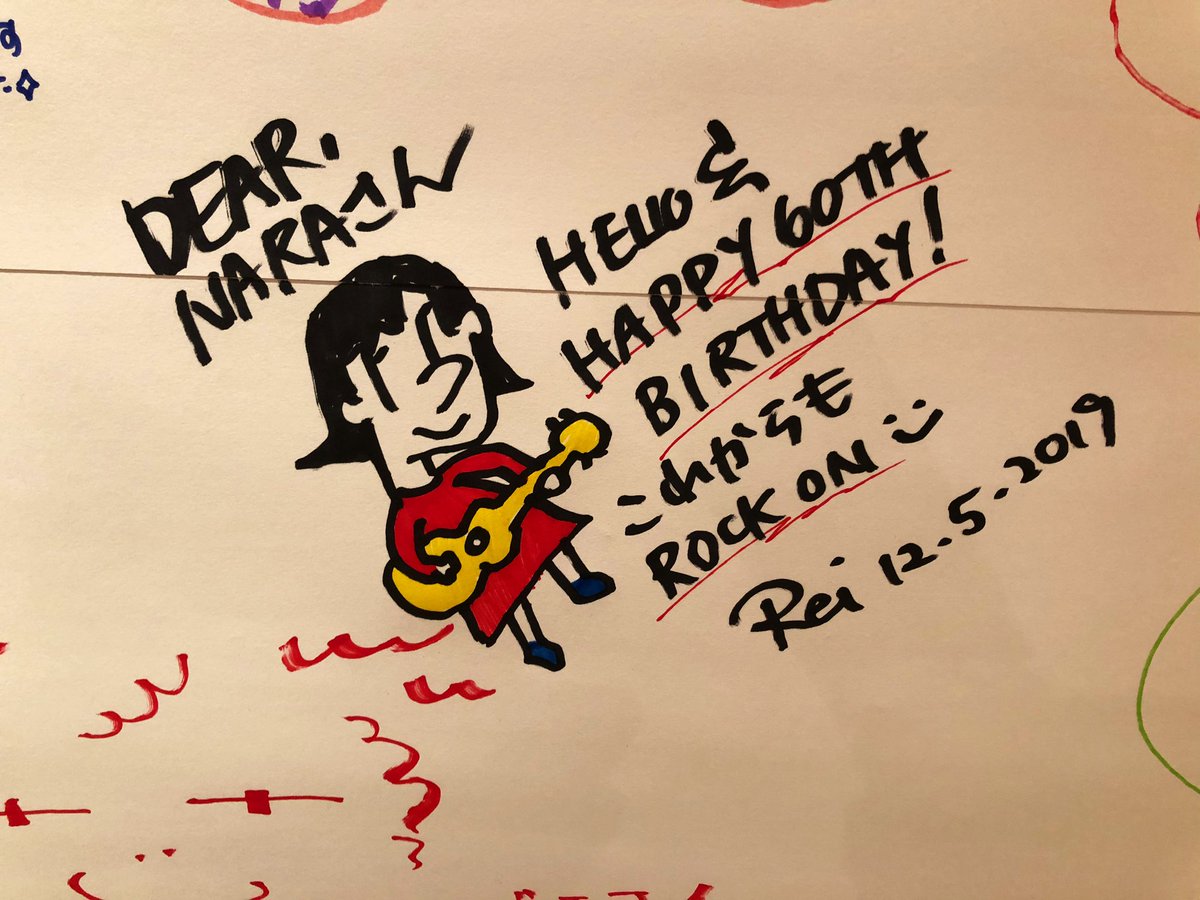 DEAR.
NARAさん
HELLO &
HAPPY 60TH
BIRTHDAY!
これからも
ROCK ON
Rei 12.5.2019